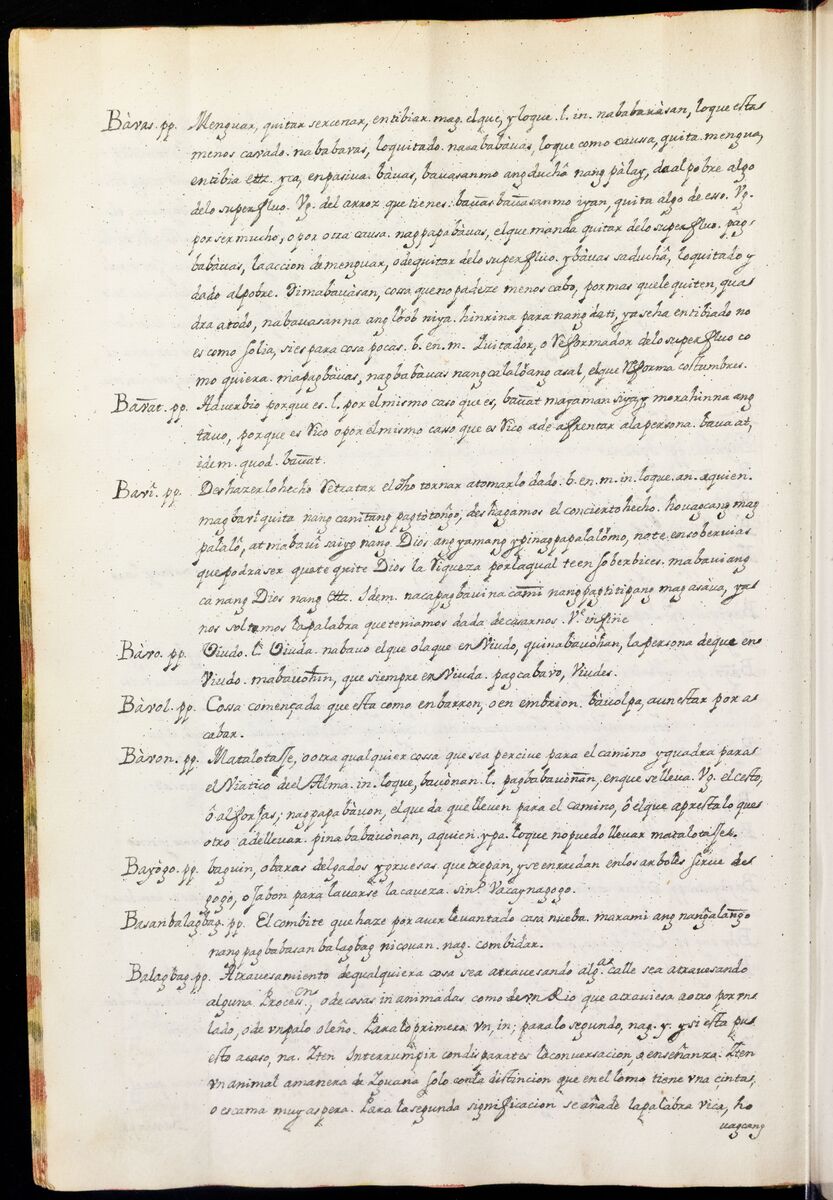 Bàvas. pp. Menguar, quitar sercenar, entibiar. mag. el que, y loque. l. in. nababavàsan, loque esta
menos cavado. nababavas, loquitado. nacababàvas, loque como caussa, quita. mengua,
entibia ettz. yca, enpasiva. bàvas, bavasanmo ang duchâ nang pàlay, da al pobre algo
delo superfluo. Vg. del arroz que tienes: bavas bavasanmo iyan, quita algo de eso. Vg.
por ser mucho, o por otra causa. nagpapabàvas, el que manda quitar delo superfluo. pàg-
babàvas, la accion de menguar, o de quitar delo superfluo. ybàvas sa duchâ, lo quitado y
dado al pobre. Di mabavàsan, cossa que no padeze menos cabo, por mas quele quiten, qua
dra atodo, nabavasanna ang lôob niya. hinrina para nang dati, ya seha entibiado no
es como solia, si es para cosa pocas. b. en. m. Quitador, o Reformador delo superfluo co
mo quiera. mapagbàvas, nagbabàvas nang calalôang asal, el que Reforma costumbres.
Bavat. pp. Adverbio porque es. l. por el mismo caso que es, bavat mayaman siyay morahinna ang
tàvo, porque es Rico o por el mismo casso que es Rico a de afrentar ala persona. bava at,
idem. quod. bavat.
Bavî. pp. Deshazer lo hecho Retratar el dho tornar atomar lo dado. b. en. m. in. loque. an. aquien.
magbavî quita nang canitang pagtotongo, deshagamos el concierto hecho. houag cang mag
palalô, at mabavî saiyo nang Dios ang yamang ypinagpapalalômo, note ensobervias
que podra ser quete quite Dios la Riqueza por la qual te ensoberbices. mabavi ang
ca nang Dios nang ettz. Idem. nacapagbavi na cami nang pagtitipang mag asàva, ya
nos soltamos la palabra que teniamos dada de casarnos. Ve. infine
Bàvo. pp. Viudo. l. Viuda. nabavo el que o la que enViudo, quinabavòhan, la persona de que en
Viudo. mabavohin, que siempre enViuda. pagcabavo, Viudes.
Bàvol. pp. Cossa començada que esta como enbarron, o en embrion. bàvolpa, aun estar por a
cabar.
Bàvon. pp. Matalotasse, o otra qualquier cossa que sea percive para el camino y quadra para
el Viatico del Alma. in. loque, bavònan. l. pagbabavònan, en que se lleva. Vg. el cesto,
ô alforjas; nagpapabàvon, el que da que lleven para el camino, ô el que apresta lo que
otro a dellevar. pinababavònan, aquien. y pa. loque no puedo llevar matalotasse.
Bayògo. pp. baguin, o baras delgados y gruesas que trepan, y se enraidan enlos arboles sirve de
gogò, o Jabon para lavarse la caveza. sin.º Vacay nagogo.
Basanbalagbag. pp. El combite que haze por aver levantado casa nueba. marami ang nangalango
nang pagbabasan balagbag ni couan. nag. combidar.
Balagbag. pp. Atravesamiento de qualquiera cosa sea atravesando alg.as calle sea atravesando
alguna Process.on, o de cosas inanimadas como de vn Rio que atraviesa a otro por vn
lado, o de vn palo o leño. Para lo primero. vn, in; para lo segundo, nag. y. y si esta pu
esto acaso, na. Iten Interrumpir con disparates la conversacion, o enseñanza. Iten
vn animal amanera de Iguana solo con la distincion que en el lomo tiene vna cinta,
o escama muy aspera. Para la segunda significacion se añade la palabra vica, ho
uag cang